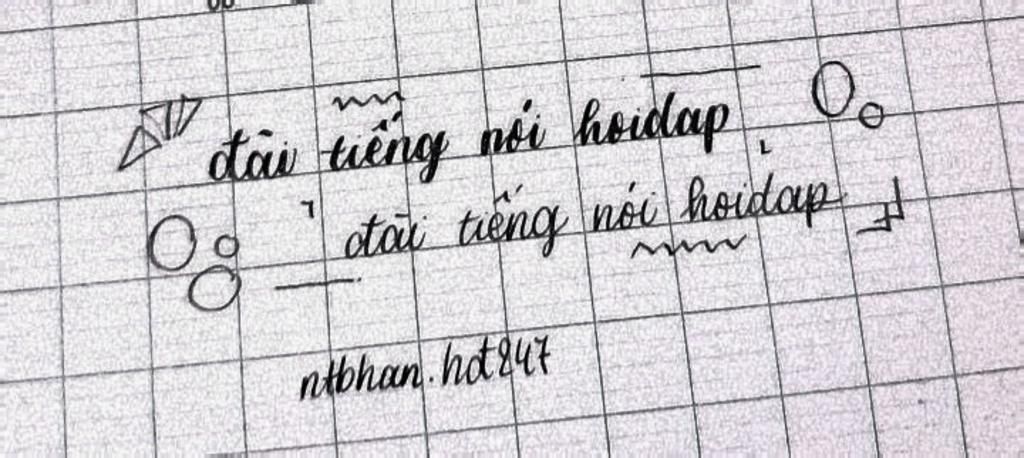 đài tiếng nói hoidap
đài tiếng nói hoidap
ntbhan.hd247